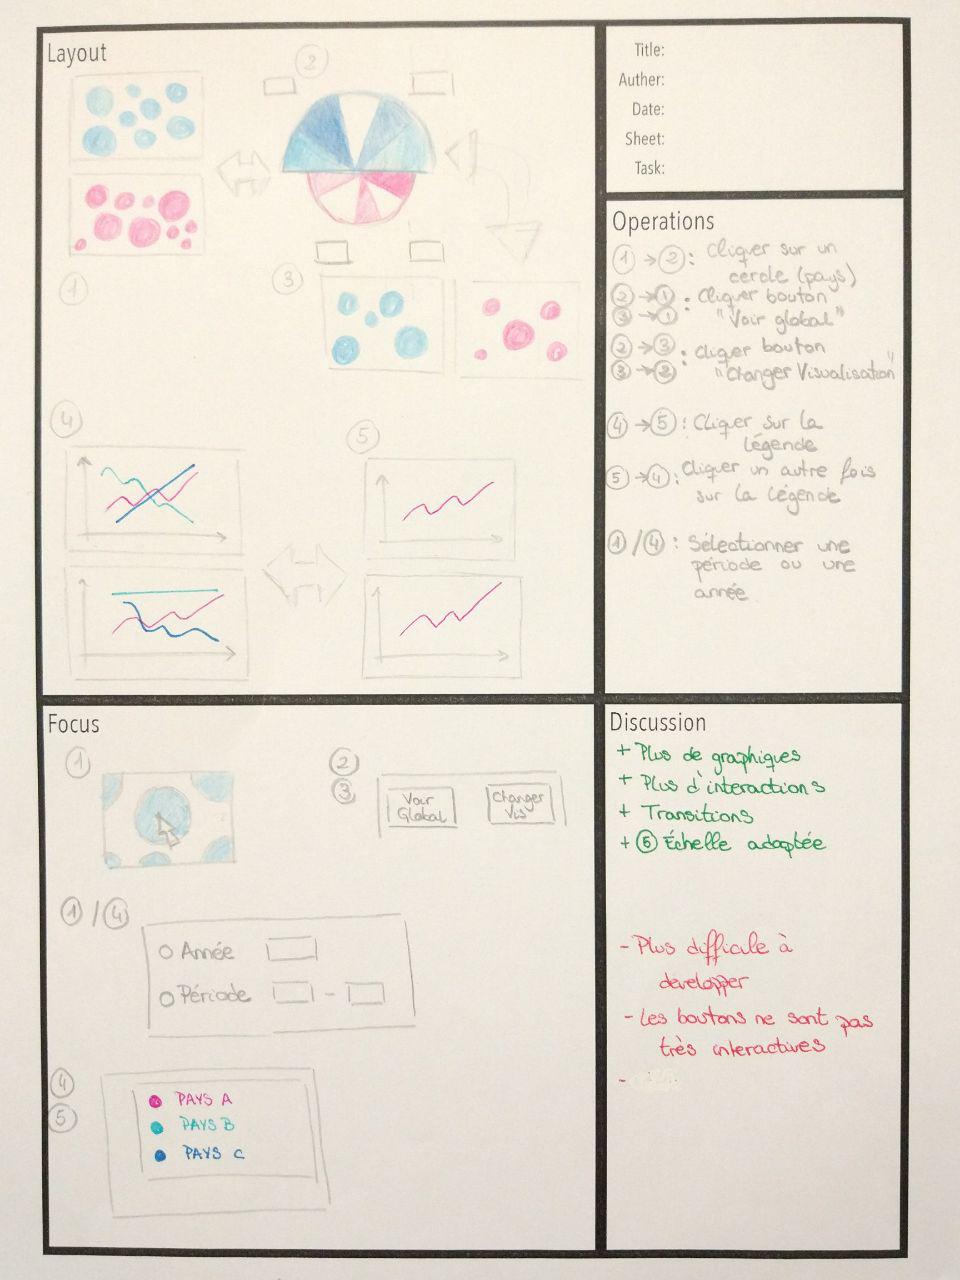 Layout
2
1
3
4
5
Title:
Auther:
Date:
Sheet:
Task:
Operations
1 → 2 : Cliquer sur un
cercle (pays)
2 → 1 : Cliquer bouton
3 → 1 : "Voir global"
2 → 3 : Cliquer bouton
3 → 2 : "Changer Visualisation"
4 → 5 : Cliquer sur la
légende
5 → 4 : Cliquer un autre fois
sur la légende
1 / 4 : Sélectionner une
période ou une
année
Focus
1
2
3
Voir
Global
Changer
Vis
1 / 4
Année
Période -
4
5
PAYS A
PAYS B
PAYS C
Discussion
+ Plus de graphiques
+ Plus d'interactions
+ Transitions
+ 5 Échelle adaptée
- Plus difficile à
developper
- Les boutons ne sont pas
très interactives
-